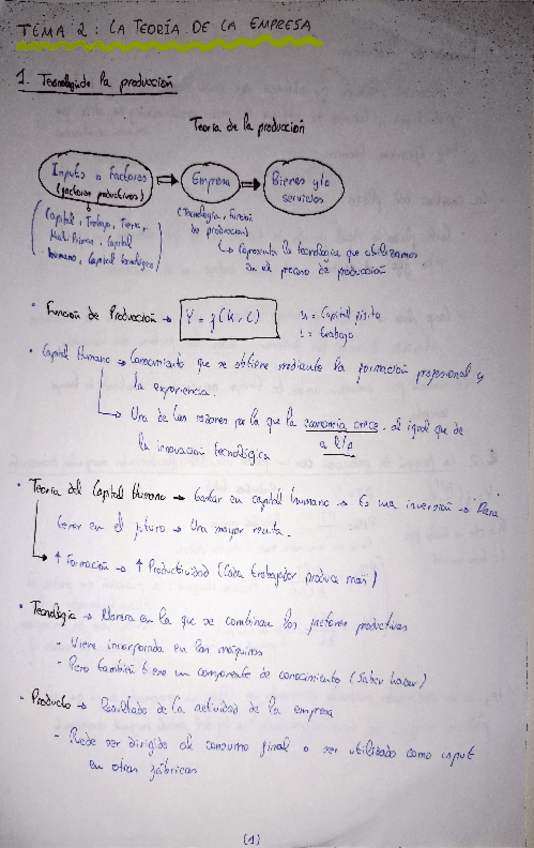 TEMA 2: LA TEORÍA DE LA EMPRESA
1. Tecnología de la producción
Teoría de la producción
Inputs o Factores
(factores productivos)
Empresa
Bienes y/o
servicios
(Capital, Trabajo, Tierra,
Mat. Prima, Capital
humano, Capital tecnológico)
(Tecnología, Función
de producción)
↳ Representa la tecnología que utilizamos
en el proceso de producción
· Función de Producción → Y = f(K, L)
K = Capital físico
L = trabajo
· Capital Humano → Conocimiento que se obtiene mediante la formación profesional y
la experiencia.
↳ Una de las razones por la que la economía crece, al igual que de
la innovación tecnológica
a l/p
· Teoría del Capital Humano → Gastar en capital humano → Es una inversión → Para
tener en el futuro → Una mayor renta.
↳ ↑ Formación → ↑ Productividad (Cada trabajador produce más)
· Tecnología → Manera en la que se combinan los factores productivos
- Viene incorporada en las máquinas
- Pero también tiene un componente de conocimiento (Saber hacer)
· Producto → Resultado de la actividad de la empresa
- Puede ser dirigido al consumo final o ser utilizado como input
en otras fábricas
(1)